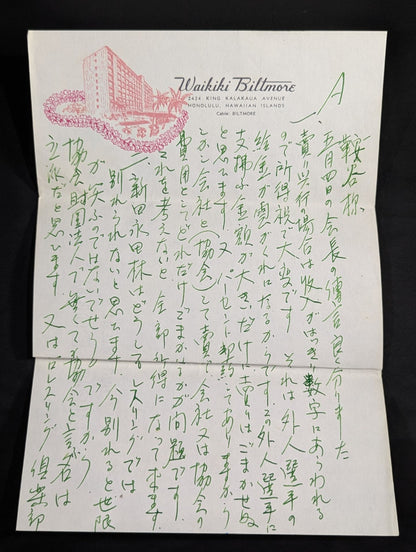 Waikiki Biltmore
2424 KING KALAKAUA AVENUE
HONOLULU, HAWAIIAN ISLANDS
Cable: BILTMORE
A
鞍谷様
一、五月四日の会長の傳言良く分りました
賣り興行の場合は収入がはっきり数字にあらわれる
ので所得税で大変です それは外人選手の
給金が賣がこれになるからです この外人選手に
支拂ふ金額が大きいだけに賣りはごまかせぬ
と思てます 又パーセント契約でありますから
しかし会社と(協会)して賣って会社又は協会の
費用としてどれだけごまかせるかが問題です
それを考えないと全部所得になって来ます
一、新田永田林はどうしてもレスリングでは
別れられないと思てます 今別れると世限
が笑ふのではないでせうか ですから
協会財團法人で無くて協会と言ふ名は
立派だと思います 又はプロレスリング倶楽部